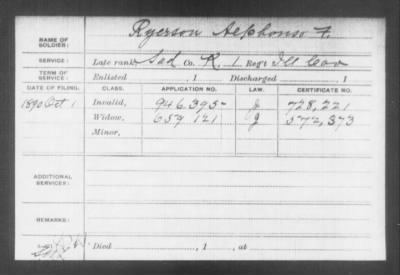 NAME OF SOLDIER: Ryerson Alphonso F.
SERVICE: Late rank Sad Co. K 1 Reg't Ill Cav
TERM OF SERVICE: Enlisted , 1 Discharged , 1
DATE OF FILING. CLASS. APPLICATION NO. LAW. CERTIFICATE NO.
1890 Oct 1 Invalid, 946.395 J 728,221
Widow, 659 121 J 572,373
Minor,
ADDITIONAL SERVICES:
REMARKS:
Died , 1 , at